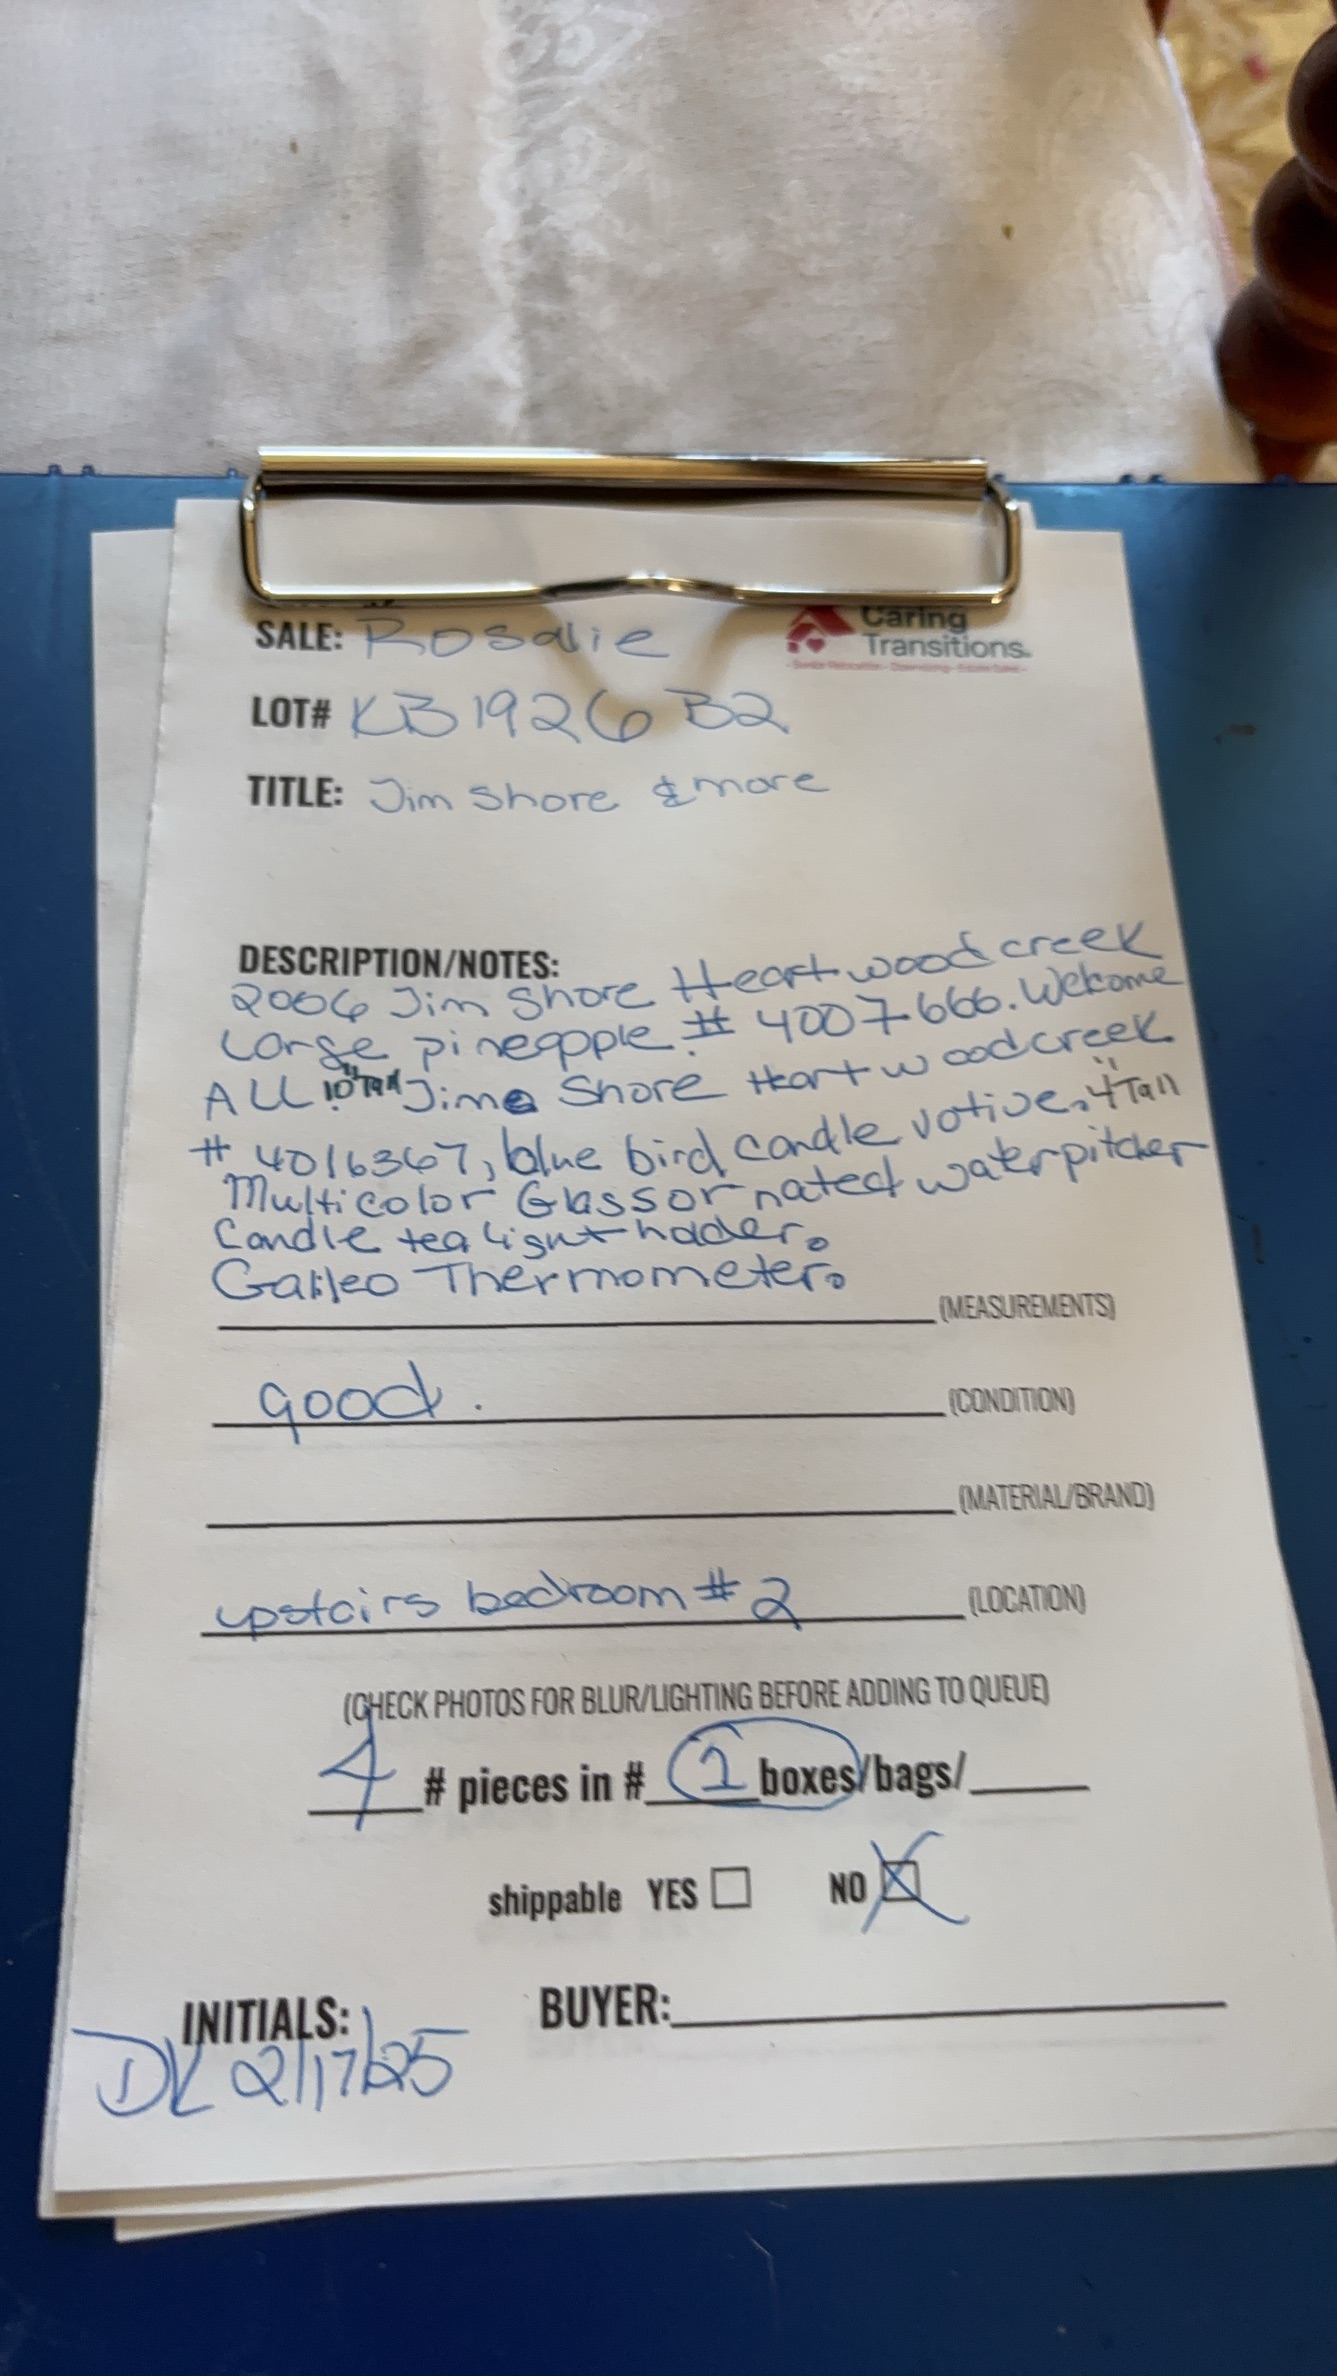 SALE: Rosalie
Caring
Transitions.
LOT# KB1926 B2
TITLE: Jim Shore & more
DESCRIPTION/NOTES:
2006 Jim Shore Heartwood creek
Large pineapple. # 4007666. Welcome
ALL. 10" Tall Jim Shore Heartwood creek
# 4016367, blue bird candle votive. 4" Tall
Multicolor Glass ornated water pitcher
Candle tea light holder.
Galileo Thermometer.
(MEASUREMENTS)
good. (CONDITION)
(MATERIAL/BRAND)
upstairs bedroom # 2 (LOCATION)
(CHECK PHOTOS FOR BLUR/LIGHTING BEFORE ADDING TO QUEUE)
4 # pieces in # 1 boxes/bags/
shippable YES NO
INITIALS: BUYER:
DL 2/17/25